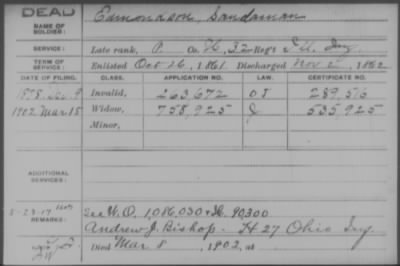 DEAD
NAME OF SOLDIER:
Edmondson, Sandaman
SERVICE:
Late rank, P. Co. H, 32 Reg't Ill. Inf
TERM OF SERVICE:
Enlisted Oct 26, 1861. Discharged Nov 2, 1862
DATE OF FILING. CLASS. APPLICATION NO. LAW. CERTIFICATE NO.
1878 Dec 9 Invalid, 263,672 289,516
1902 Mar 15 Widow, 758,925 535,925
Minor,
ADDITIONAL SERVICES:
5-23-17
REMARKS:
See W.O. 1,086,030 + H. 90,300
Andrew J. Bishop. H 27 Ohio Inf.
Died Mar 8, 1902, at